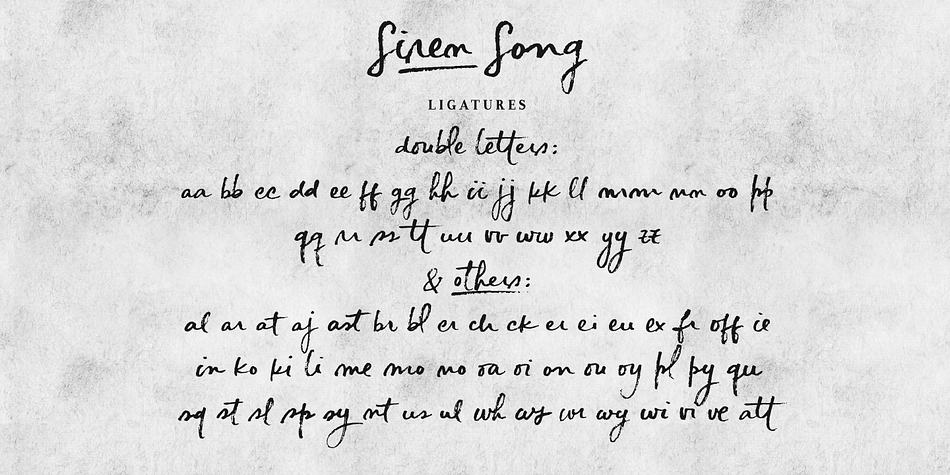 Siren Song
LIGATURES
double letters:
aa bb cc dd ee ff gg hh ii jj kk ll mm nn oo pp
qq rr ss tt uu vv ww xx yy zz
& others:
al ar at aj ast br bl er ch ck er ei eu ex fr off ie
in ko ki li me mo no oa oi on ou oy pl py qu
sq st sl sp sy nt us ul wh wr wy wi vi ve att